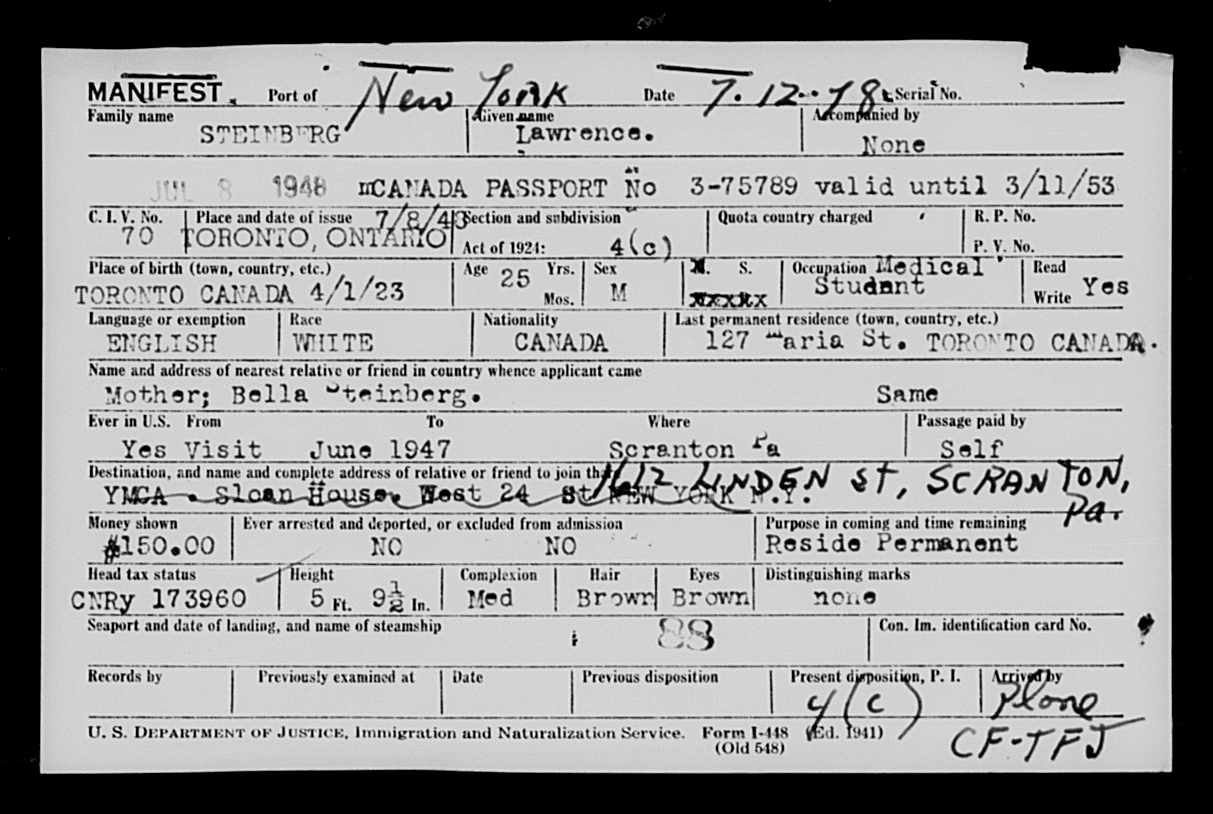 MANIFEST. Port of New York Date 7.12.48 Serial No.
Family name Given name Accompanied by
STEINBERG Lawrence. None
JUL 8 1948 CANADA PASSPORT No 3-75789 valid until 3/11/53
C. I. V. No. Place and date of issue 7/8/48 Section and subdivision Quota country charged R. P. No.
70 TORONTO, ONTARIO Act of 1924: 4(c) P. V. No.
Place of birth (town, country, etc.) Age 25 Yrs. Sex M. S. Occupation Medical Read
TORONTO CANADA 4/1/23 Mos. M Student Write Yes
Language or exemption Race Nationality Last permanent residence (town, country, etc.)
ENGLISH WHITE CANADA 127 Maria St. TORONTO CANADA.
Name and address of nearest relative or friend in country whence applicant came
Mother; Bella Steinberg. Same
Ever in U.S. From To Where Passage paid by
Yes Visit June 1947 Scranton Pa Self
Destination, and name and complete address of relative or friend to join
YMCA. Sloan House. West 24 St NEW YORK N.Y. 1612 LINDEN ST, SCRANTON, Pa.
Money shown Ever arrested and deported, or excluded from admission Purpose in coming and time remaining
$150.00 NO NO Reside Permanent
Head tax status Height Complexion Hair Eyes Distinguishing marks
CNRy 173960 5 Ft. 9½ In. Med Brown Brown none
Seaport and date of landing, and name of steamship 88 Con. Im. identification card No.
Records by Previously examined at Date Previous disposition Present disposition, P. I. Arrived by
4(c) Plane
U. S. DEPARTMENT OF JUSTICE, Immigration and Naturalization Service. Form I-448 (Ed. 1941) CF-TFJ
(Old 548)